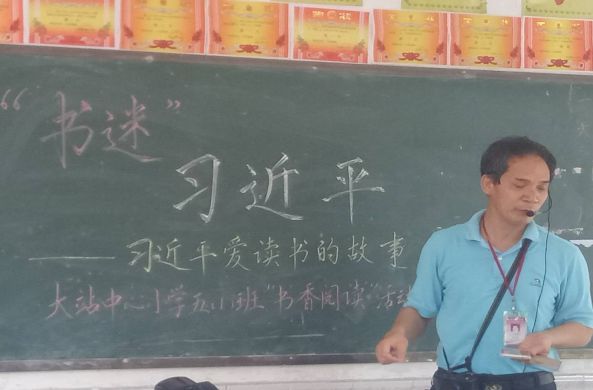 “书迷”
习近平
——习近平爱读书的故事
大站中心小学五(1)班“书香阅读”活动